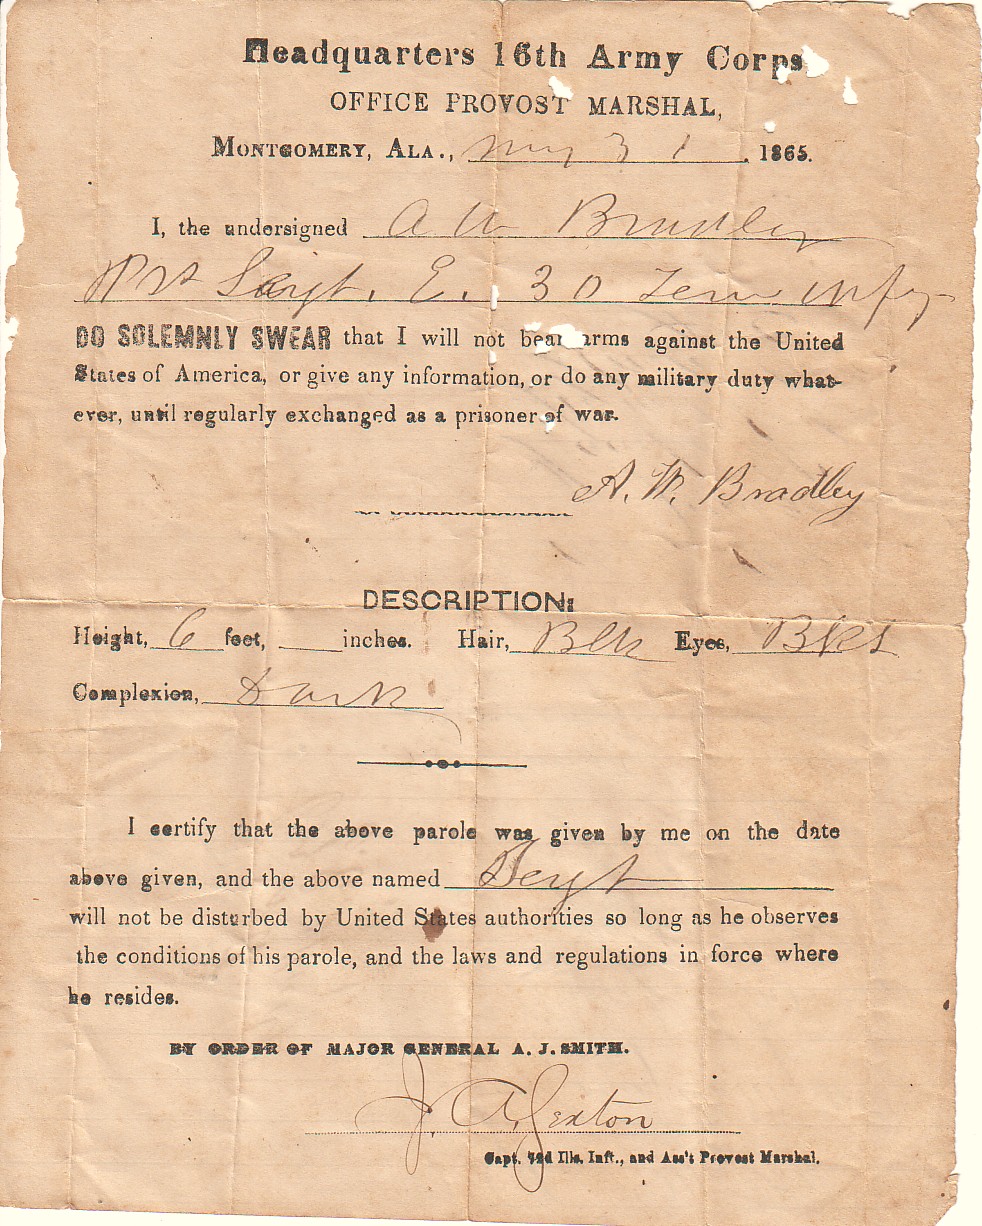 Headquarters 16th Army Corps
OFFICE PROVOST MARSHAL,
MONTGOMERY, ALA., May 31 1865.
I, the undersigned A W Bradley
Sergt. E. 30 Tenn Infy
DO SOLEMNLY SWEAR that I will not bear arms against the United
States of America, or give any information, or do any military duty what-
ever, until regularly exchanged as a prisoner of war.
A. W. Bradley
DESCRIPTION:
Height, 6 feet, inches. Hair, Blk Eyes,
Complexion, Dark
I certify that the above parole was given by me on the date
above given, and the above named Sergt
will not be disturbed by United States authorities so long as he observes
the conditions of his parole, and the laws and regulations in force where
he resides.
BY ORDER OF MAJOR GENERAL A. J. SMITH.
J. A. Sexton
Capt. 72d Ills. Inft., and Ass't Provost Marshal.